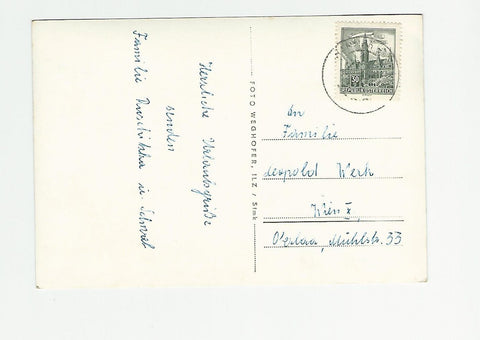 Herzliche Urlaubsgrüße
senden
Familie u.
FOTO WEGHOFER, ILZ / Stmk
REPUBLIK ÖSTERREICH
An
Familie
Leopold Werk
Wien X.
Mühlstr. 33